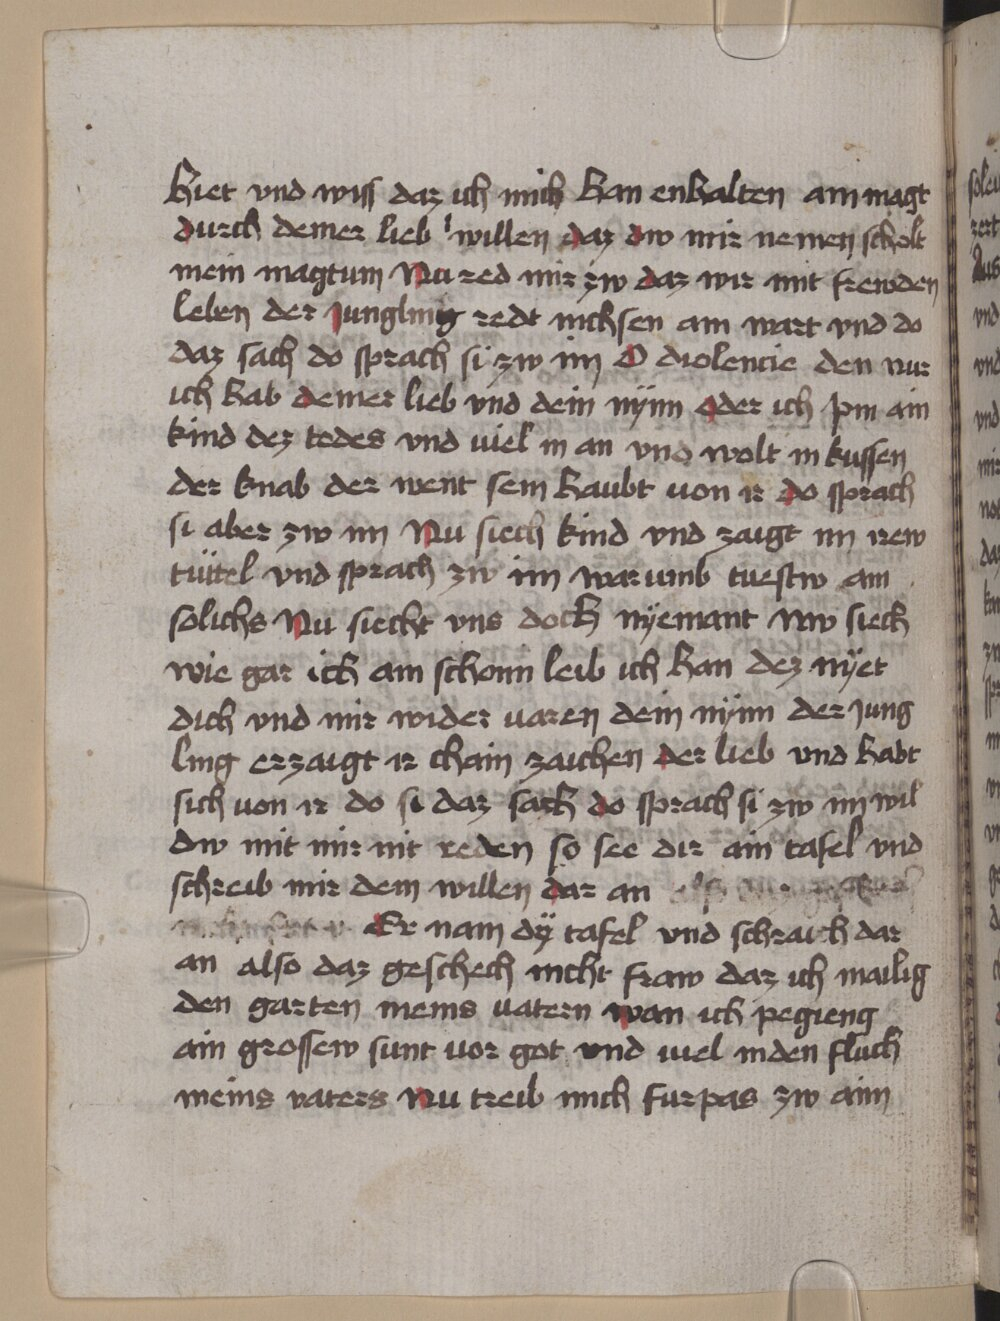 hiet vnd wiss daz ich mich han enhalten am magt
durch deiner lieb willen daz dw mir nemen scholt
mein magtum Nu red mir zw daz wir mit frewden
leben der Jungling redt nichsen ain wart vnd do
daz sach do sprach si zw im O diolencie den nur
ich hab deiner lieb vnd dein mynn oder ich pin ain
kind dez todes vnd viel in an vnd wolt in kussen
der knab der went sein haubt von ir do sprach
si aber zw im Nu siech kind vnd zaigt im irew
tüttel vnd sprach zw im warumb tuestw ain
solichs Nu siecht vns doch nyemant Nw siech
wie gar ich ain schonn leib ich han dez nyet
dich vnd mir wider varen dein mynn der Jung
ling erzaigt ir chain zaichen der lieb vnd habt
sich von ir do si daz sach do sprach si zw im wil
dw mit mir nit reden so see dir ain tafel vnd
schreib mir dein willen dar an
Er nam dy tafel vnd schraib dar
an also daz geschech nicht fraw daz ich mailig
den garten meins vatern wan ich pegieng
ain grossew sunt vor got vnd viel inden fluch
meins vaters Nu treib mich furpas zw ainn